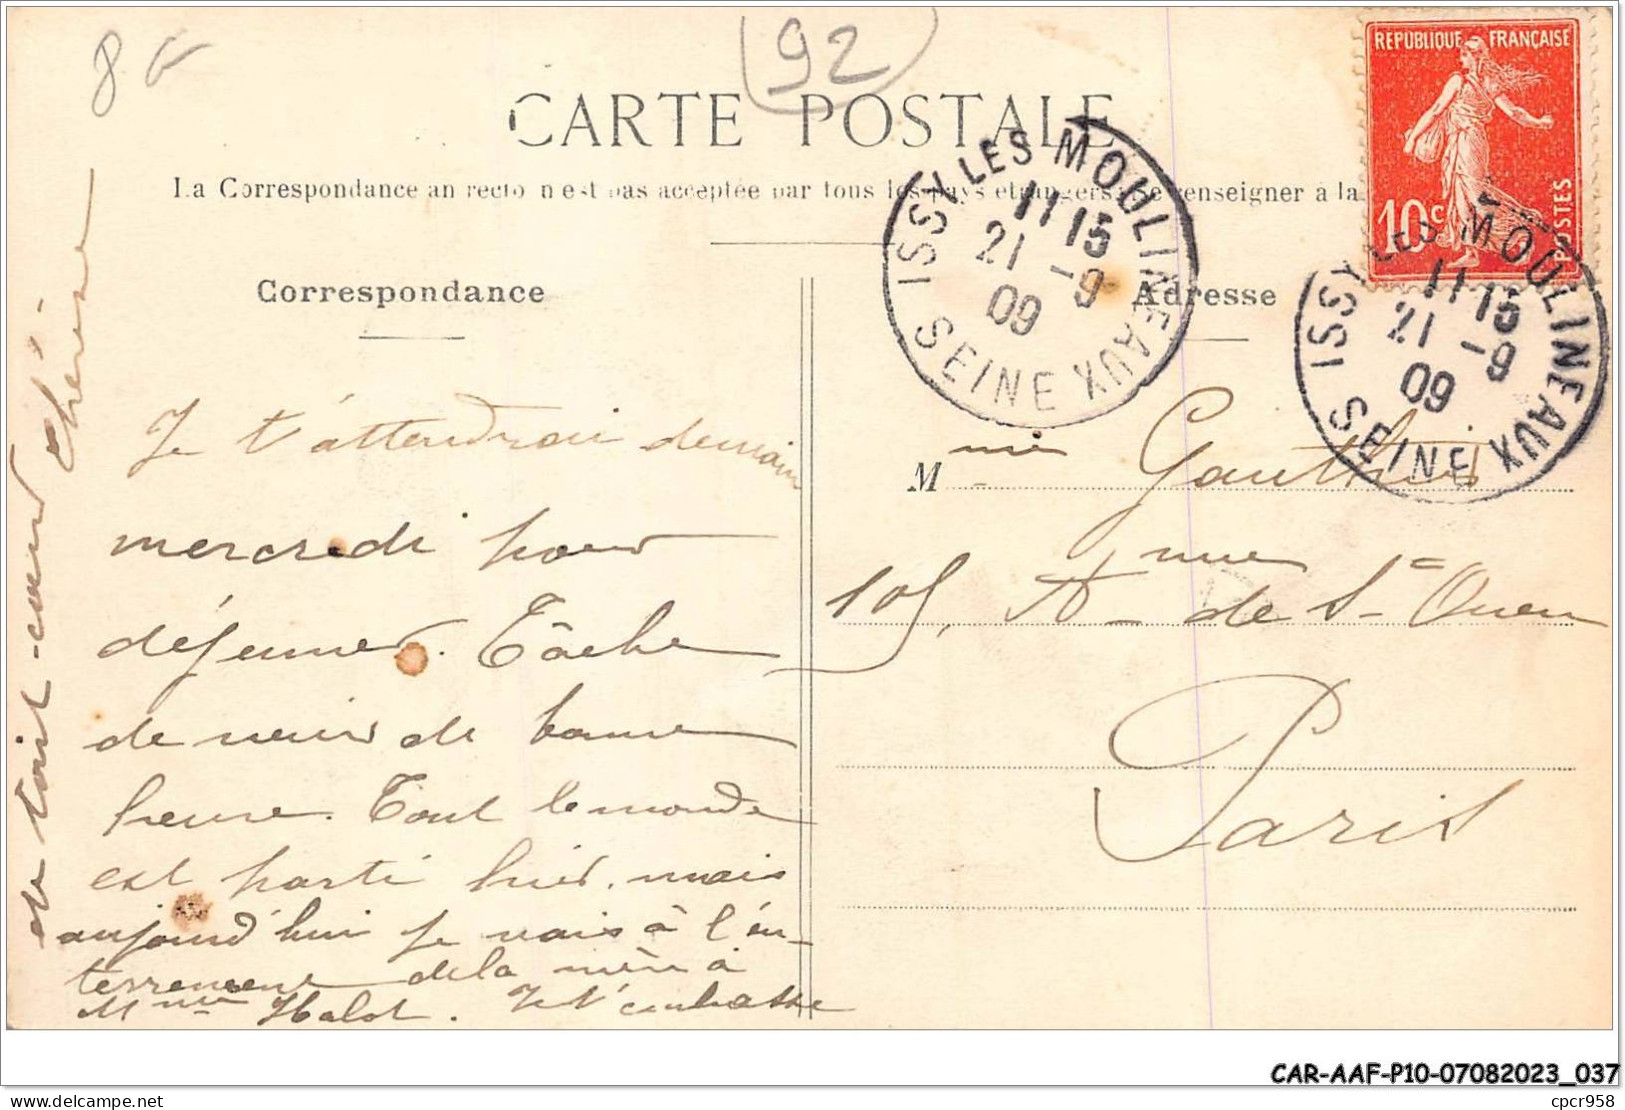 8 €
92
CARTE POSTALE
La Correspondance au recto n'est pas acceptée par tous les pays étrangers. Se renseigner à la
RÉPUBLIQUE FRANÇAISE
10 c
POSTES
ISSY LES MOULINEAUX
11 15
21 -9
09
SEINE
ISSY LES MOULINEAUX
11 15
21 -9
09
SEINE
Correspondance
Adresse
Je t'attendrai demain
mercredi pour
déjeuner. Tâche
de venir de bonne
heure. Tout le monde
est parti hier, mais
aujourd'hui je vais à l'en-
terrement de la mère à
Mme. Je t'embrasse
de tout cœur
Mme Gauthier
105, Avenue de St Ouen
Paris
CAR-AAF-P10-07082023_037
cpcr958